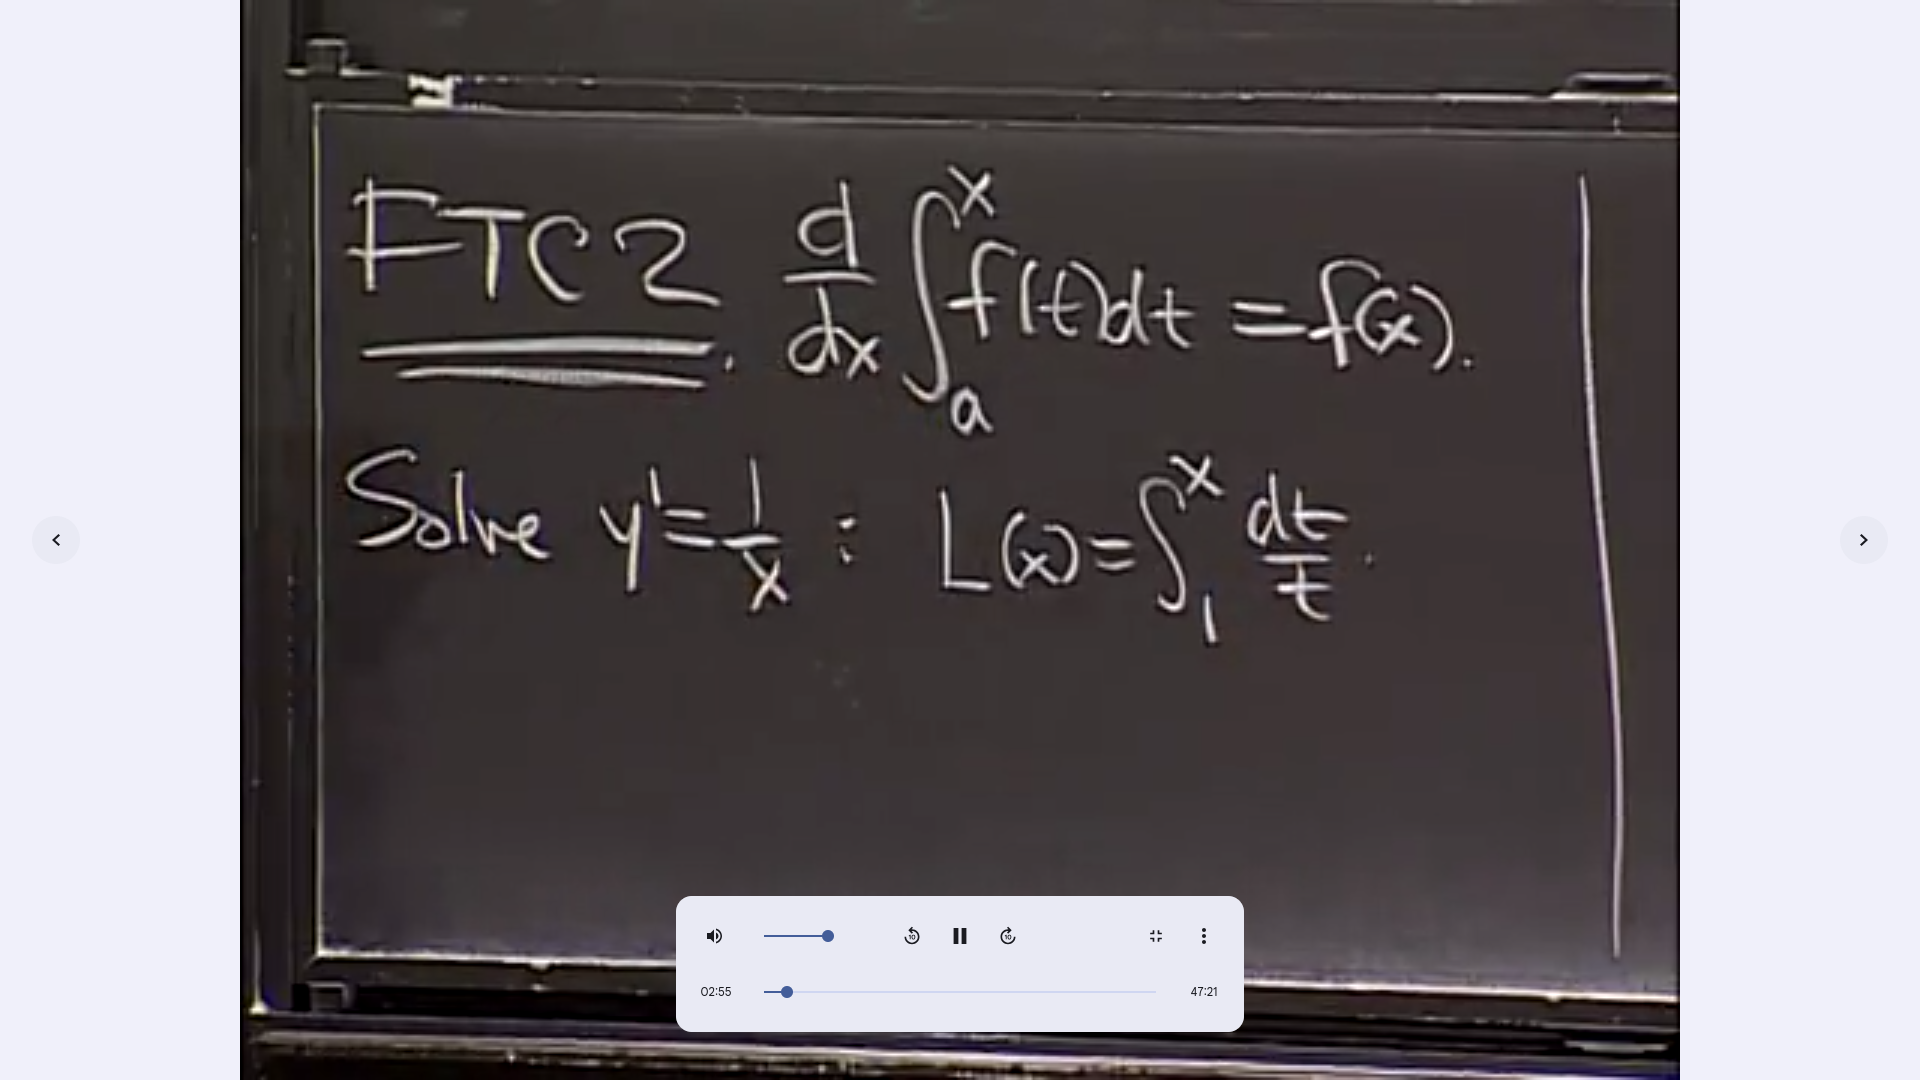 FTC2. d/dx ∫_a^x f(t)dt = f(x).
Solve y' = 1/x : L(x) = ∫_1^x dt/t.
10 10
02:55 47:21